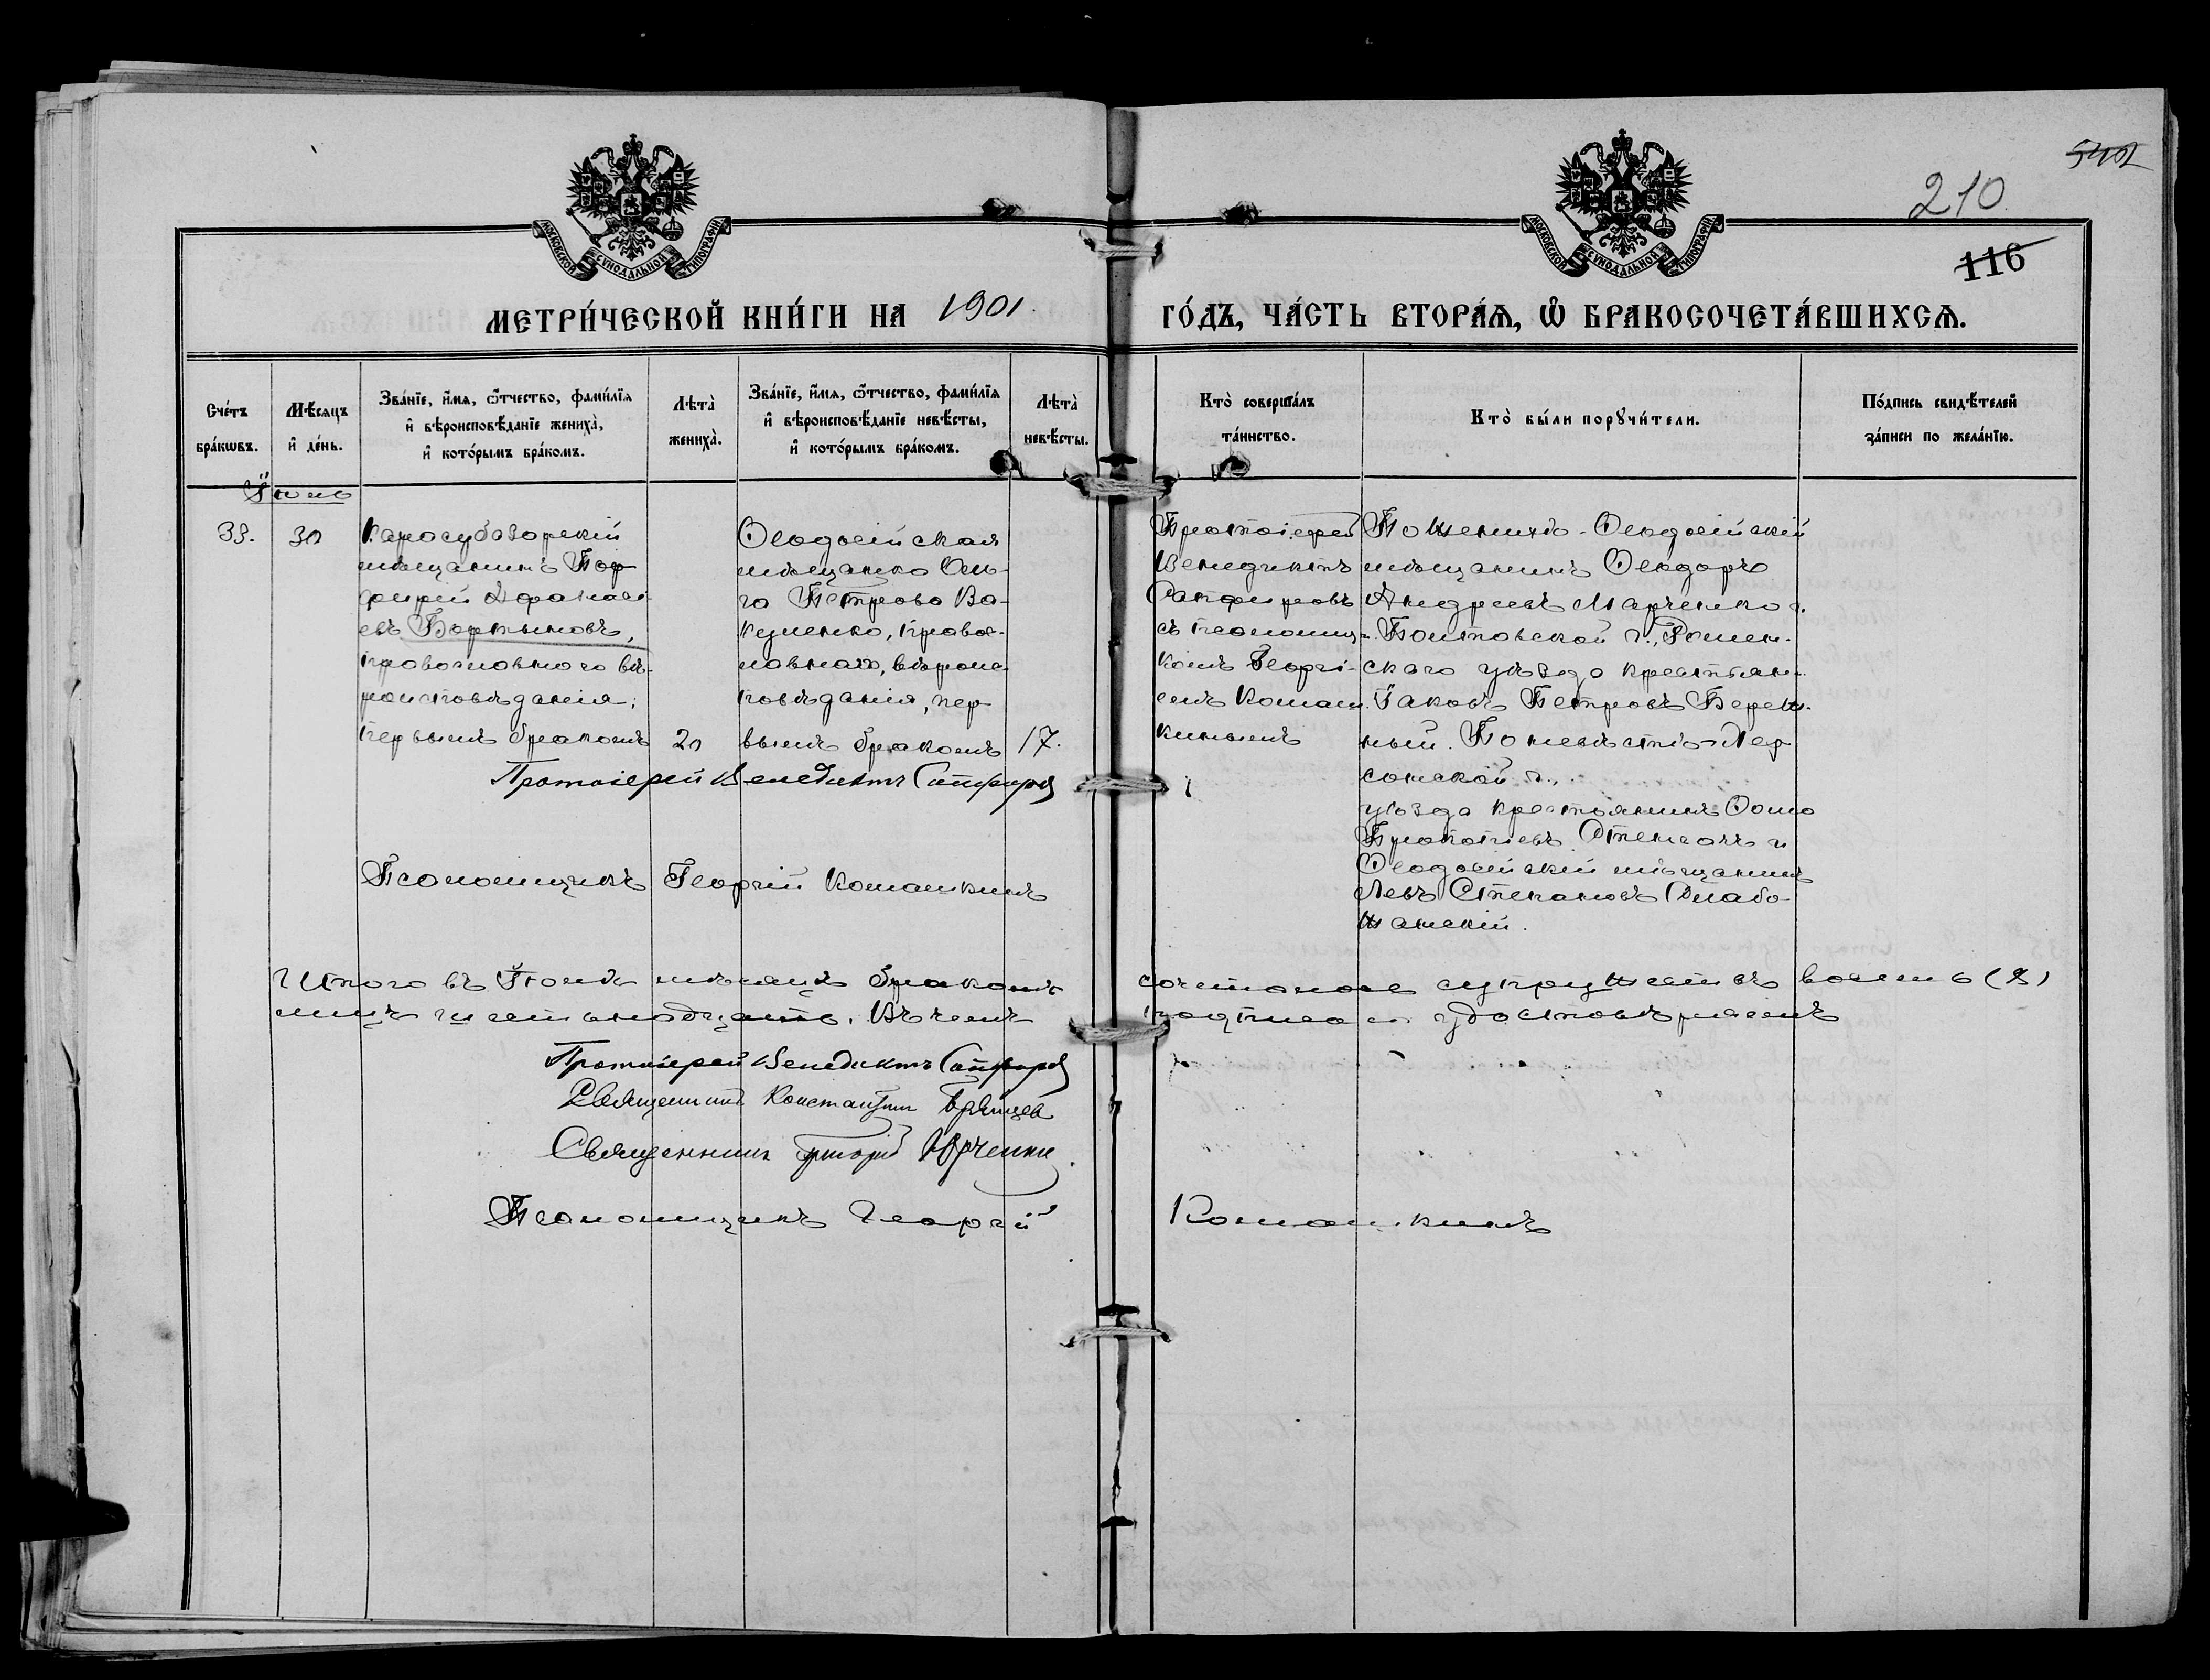 5402
210
116
МОСКОВСКОЙ СѴНОДАЛЬНОЙ ТИПОГРАФІИ
МОСКОВСКОЙ СѴНОДАЛЬНОЙ ТИПОГРАФІИ
МЕТРИ́ЧЕСКОЙ КНИ́ГИ НА 1901.
ГО́ДЪ, ЧА́СТЬ ВТОРА́Я, Ѽ БРАКОСОЧЕТА́ВШИХСЯ.
Сче́тъ
бра́кѡвъ.
Мѣ́сяцъ
и҆ де́нь.
Зва́нїе, и҆́мя, ѻ҆́тчество, фами́лїя
и҆ вѣроисповѣ́данїе жениха̀,
и҆ кото́рымъ бра́комъ.
Лѣта̀
жениха̀.
Зва́нїе, и҆́мя, ѻ҆́тчество, фами́лїя
и҆ вѣроисповѣ́данїе невѣ́сты,
и҆ кото́рымъ бра́комъ.
Лѣта̀
невѣ́сты.
Кто̀ соверша́лъ
та́инство.
Кто̀ бы́ли порꙋчи́тели.
По́дпись свидѣ́телей
за́писи по жела́нїю.
33.
30
Карасубазарскій
мѣщанинъ Пор-
фирій Афанась-
евъ
православнаго вѣ-
роисповѣданія,
первымъ бракомъ
20
Ѳеодосійская
мѣщанка Оль-
га Петрова Ва-
куленко, право-
славнаго, вѣроис-
повѣданія, пер-
вымъ бракомъ
17.
Протоіерей
Венедиктъ
Сапфировъ
съ псаломщи-
комъ Георгі-
емъ Комаш-
кинымъ
По женихѣ - Ѳеодосійскій
мѣщанинъ Ѳеодоръ
Андреевъ Марченко и
Полтавской г., Ромен-
скаго уѣзда крестьян.
Іаковъ Петровъ Береж-
ный. По невѣстѣ - Хер-
сонской г.,
уѣзда крестьянинъ Ѳома
Прокопіевъ и
Ѳеодосійскій мѣщанинъ
Левъ Степановъ Слабо-
жанскій.
Протоіерей Венедиктъ Сапфировъ
Псаломщикъ Георгій Комашкинъ
Итого въ мѣсяцѣ бракомъ сочеталось супружествъ восемь (8)
лицъ шестьнадцать. Въ чемъ подписомъ удостовѣряемъ
Протоіерей Венедиктъ Сапфировъ
Священникъ Константинъ
Священникъ Григорій Юрченко
Псаломщикъ Георгій Комашкинъ